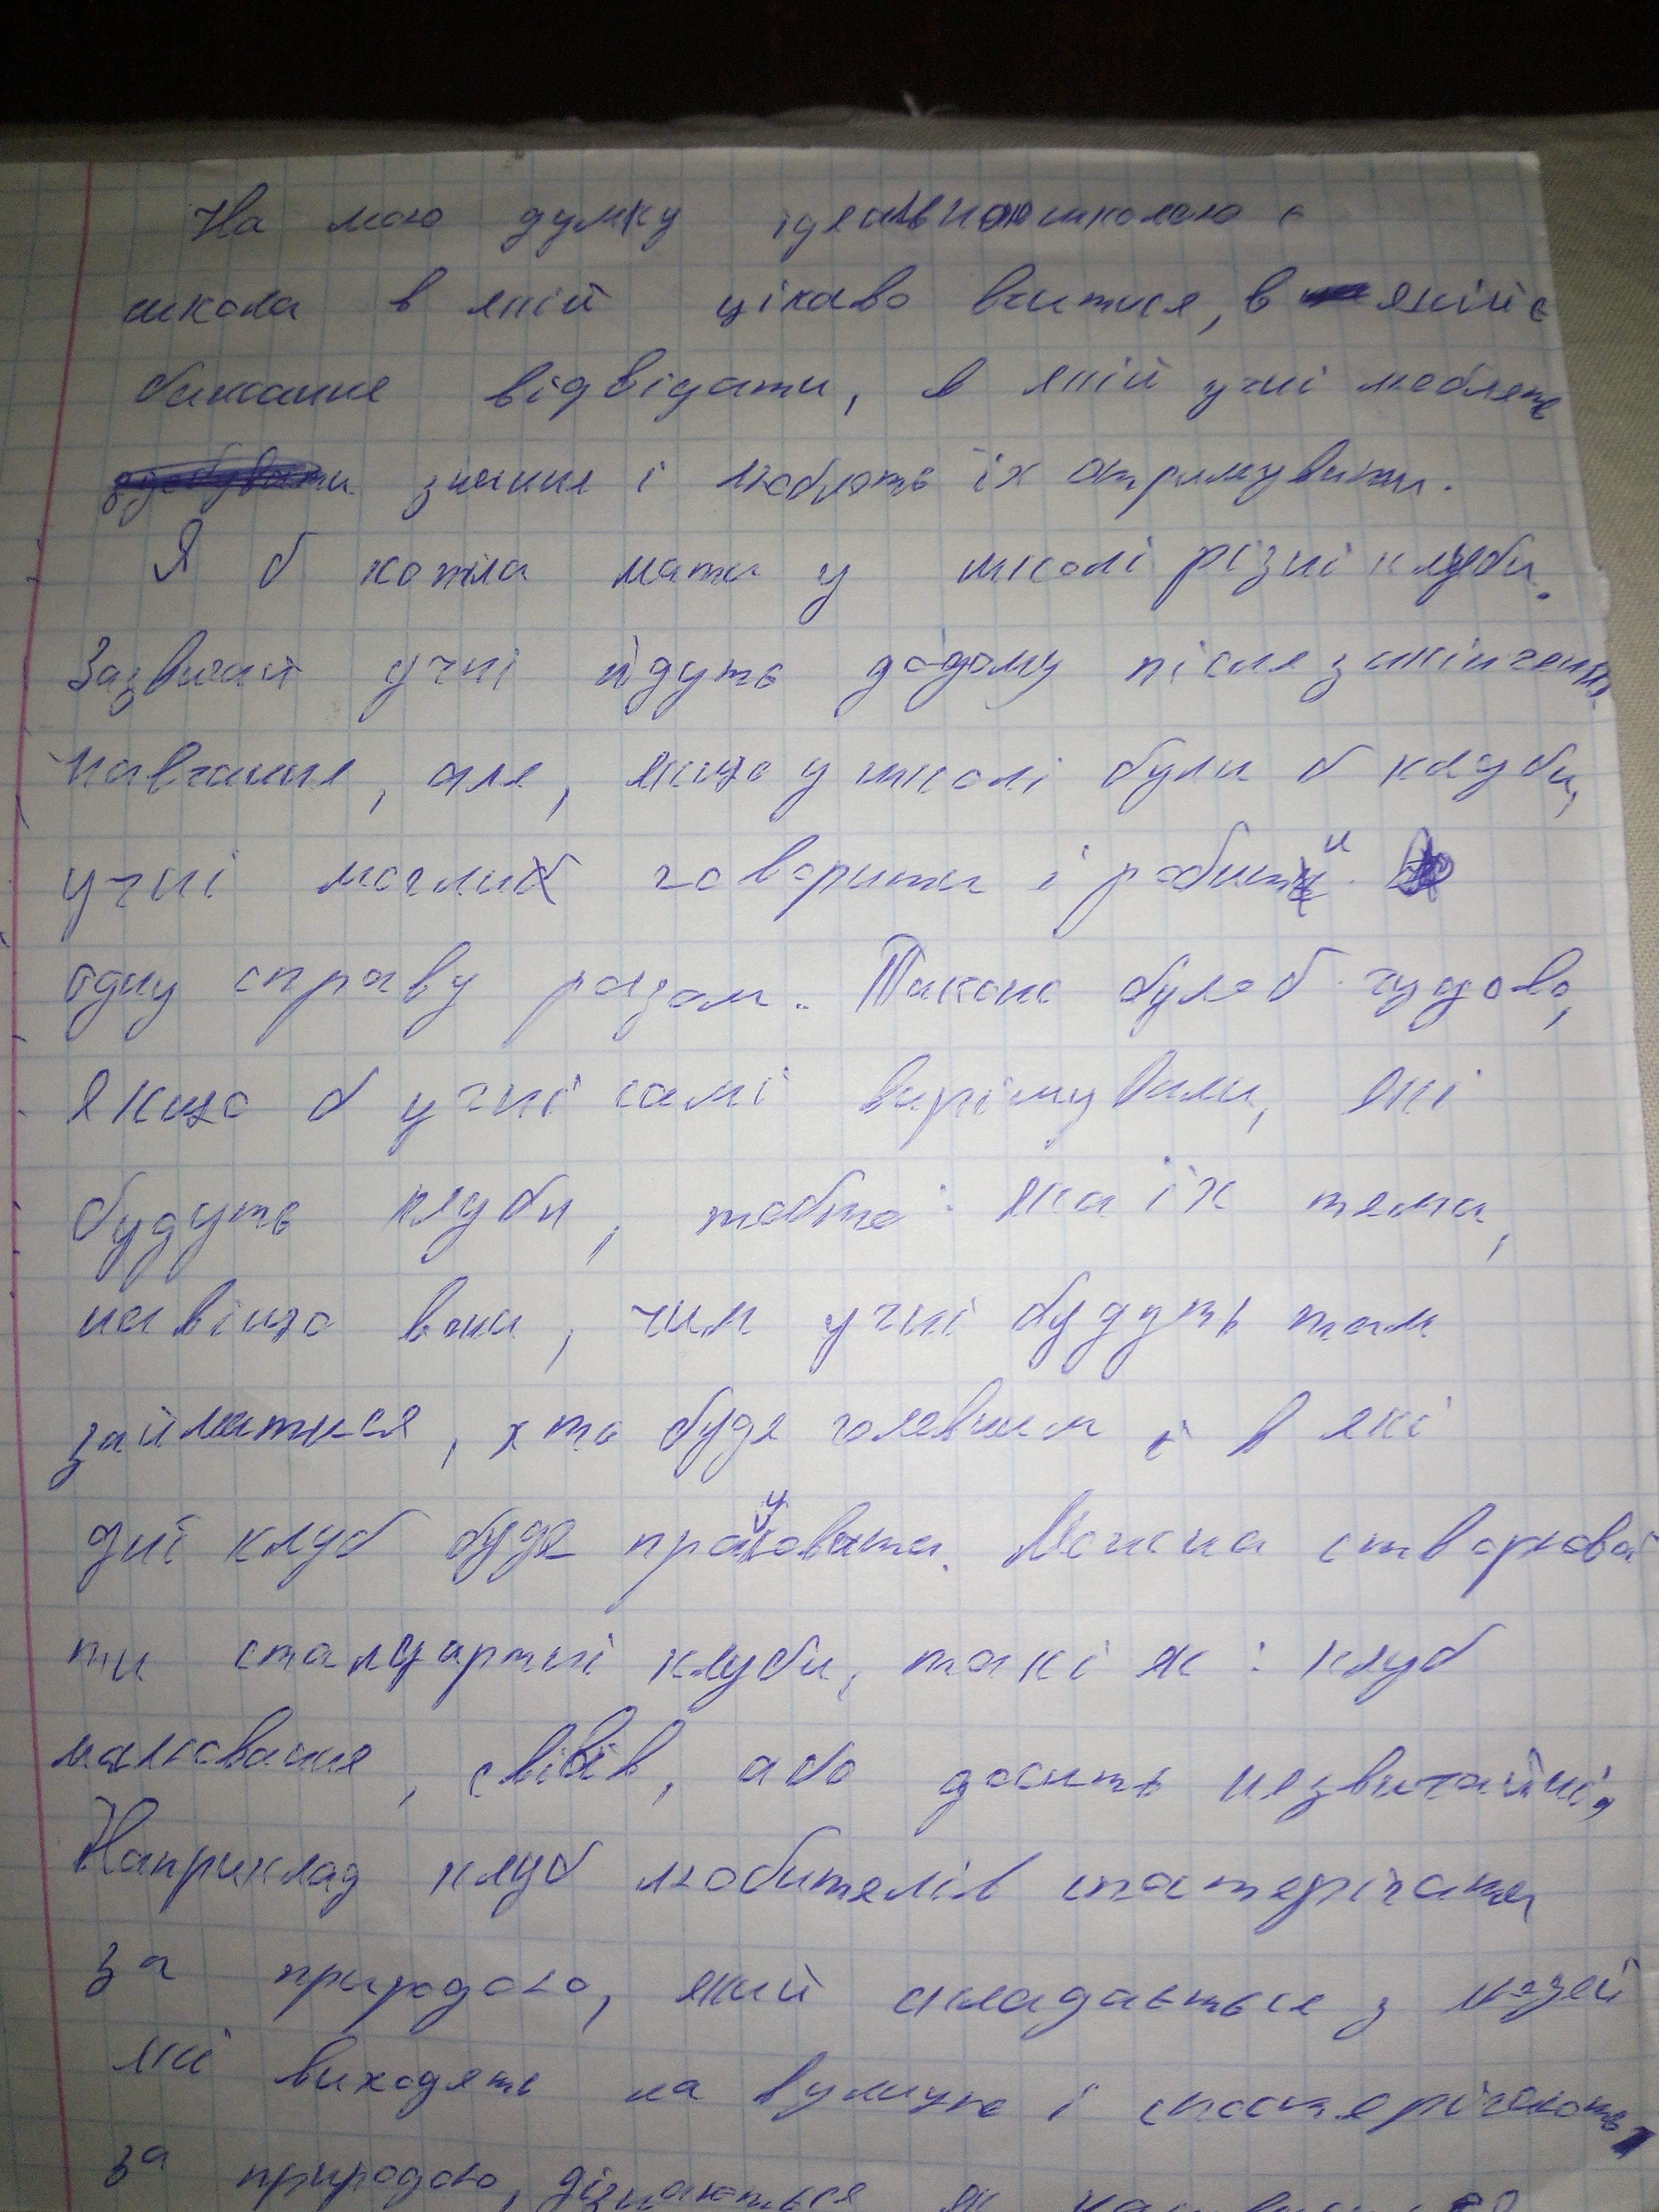 На мою думку ідеальною школою є
школа в якій цікаво вчитися, в якій є
бажання відвідати, в якій учні люблять
знання і люблять їх отримувати.
Я б хотіла мати у школі різні клуби.
Зазвичай учні йдуть додому після закінчення
навчання, але, якщо у школі були б клуби,
учні могли б говорити і робити
одну справу разом. Також було б чудово,
якщо б учні самі вирішували, які
будуть клуби, тобто: яка їх тема,
навіщо вони, чим учні будуть там
займатися, хто буде головним і в які
дні клуб буде працювати. Можна створюва
ти стандартні клуби, такі як: клуб
малювання, співів, або досить незвичайні,
Наприклад клуб любителів спостерігати
за природою, який складається з людей
які виходять на вулицю і спостерігають
за природою, дізнаються як